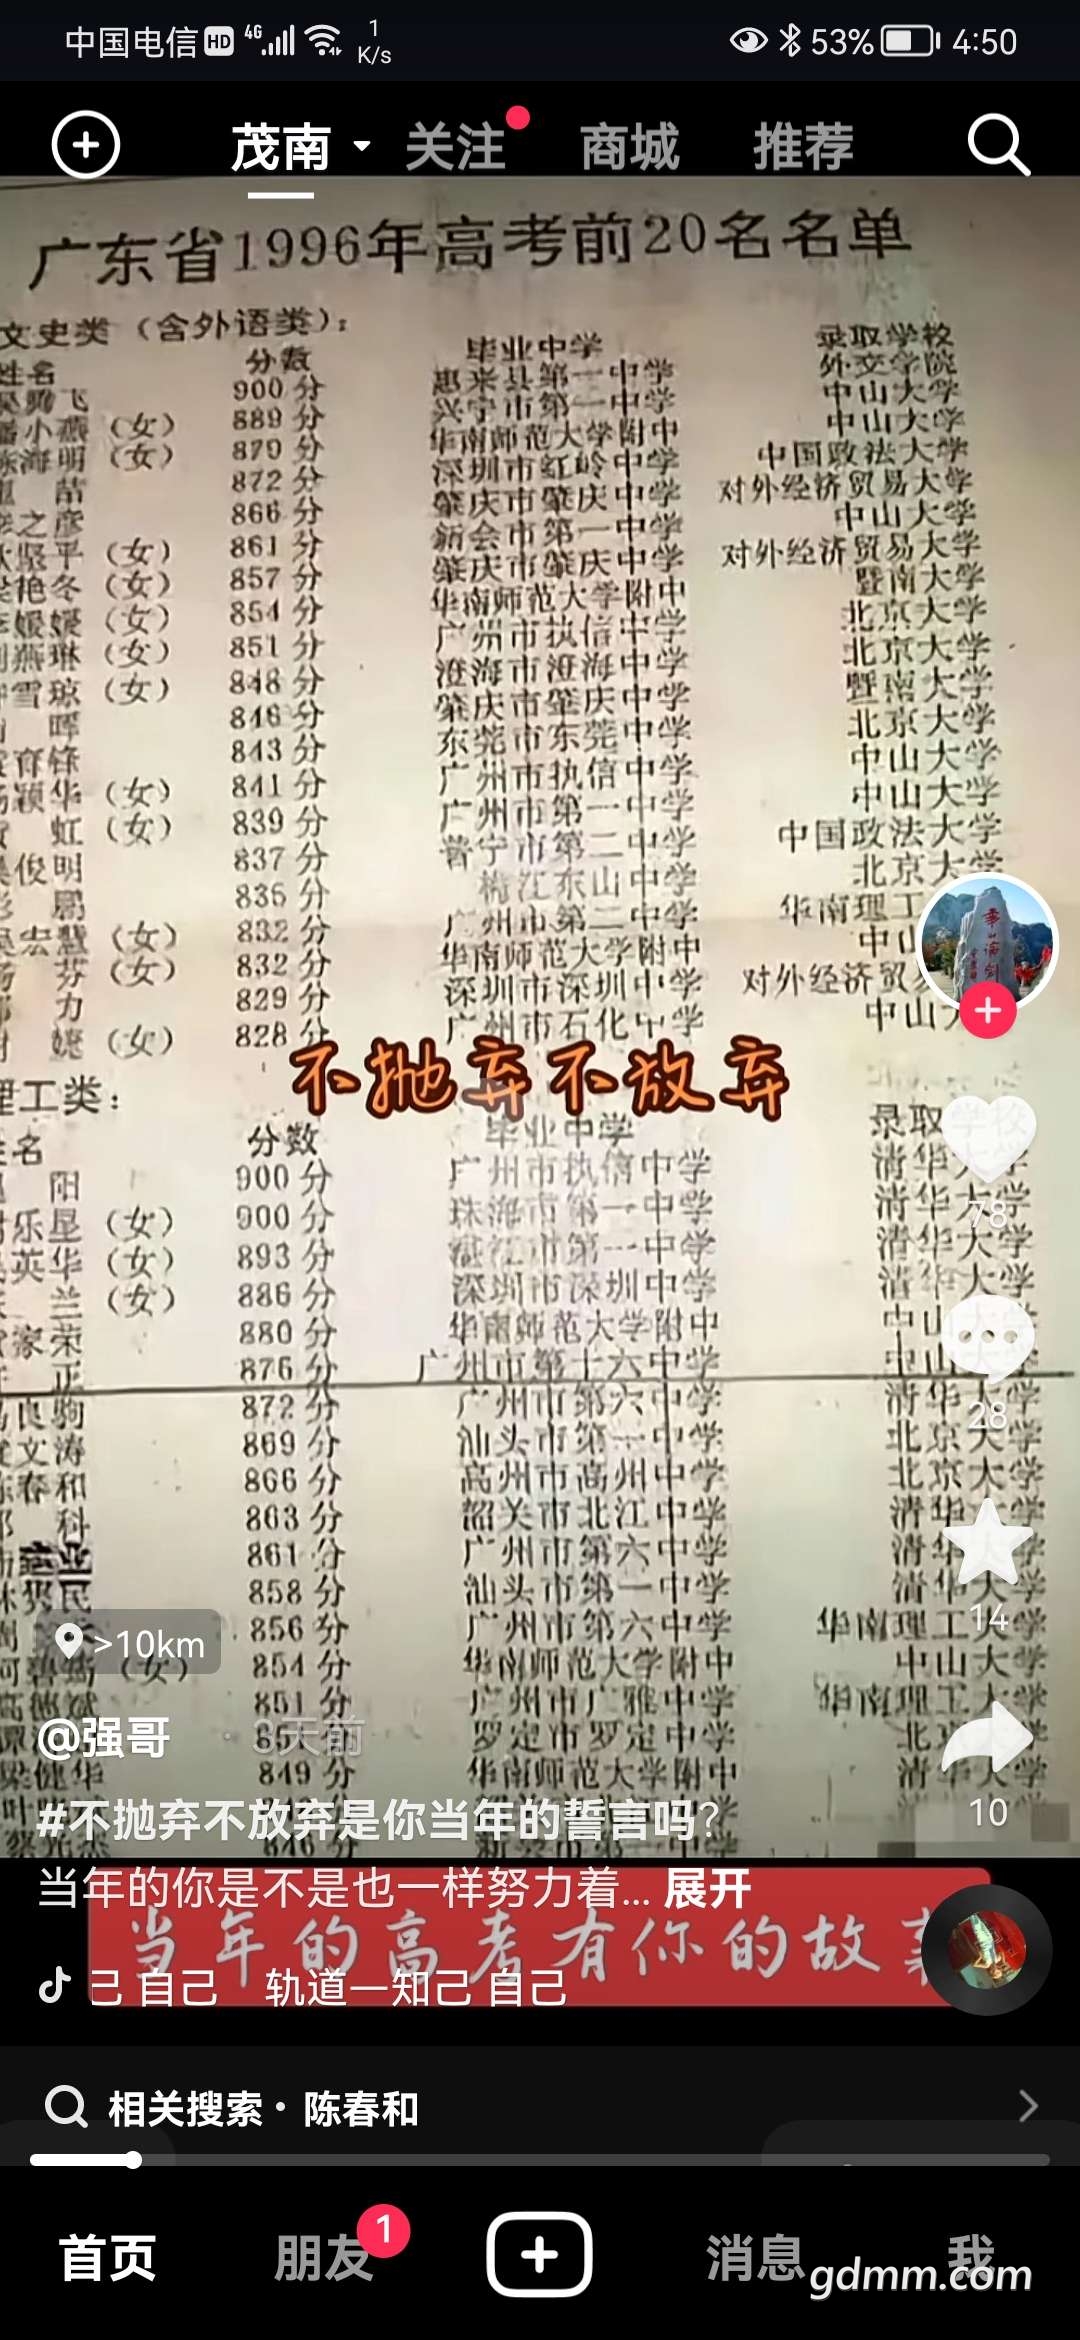 中国电信 HD 4G 1 K/s 53% 4:50
茂南 关注 商城 推荐
广东省1996年高考前20名名单
文史类（含外语类）：
姓名 分数 毕业中学 录取学校
飞 900分 惠来县第一中学 外交学院
小燕（女） 889分 兴宁市第一中学 中山大学
海明（女） 879分 华南师范大学附中 中山大学
喆 872分 深圳市红岭中学 中国政法大学
之彦 866分 肇庆市肇庆中学 对外经济贸易大学
坚平（女） 861分 新会市第一中学 中山大学
艳冬（女） 857分 肇庆市肇庆中学 对外经济贸易大学
媛媛（女） 854分 华南师范大学附中 暨南大学
燕琳（女） 851分 广州市执信中学 北京大学
雪琼（女） 848分 澄海市澄海中学 北京大学
晖 846分 肇庆市肇庆中学 暨南大学
育锋 843分 东莞市东莞中学 北京大学
颖华（女） 841分 广州市执信中学 中山大学
虹（女） 839分 广州市第一中学 中山大学
俊明 837分 普宁市第二中学 中国政法大学
鹏 835分 梅江东山中学 北京大学
宏慧（女） 832分 广州市第二中学 华南理工
芬（女） 832分 华南师范大学附中 中山
力 829分 深圳市深圳中学 对外经济贸易
娆（女） 828分 广州市石化中学 中山大
不抛弃不放弃
理工类：
姓名 分数 毕业中学 录取学校
阳 900分 广州市执信中学 清华大学
乐垦（女） 900分 珠海市第一中学 清华大学
英华（女） 893分 湛江市第一中学 清华大学
兰（女） 886分 深圳市深圳中学 清华大学
家荣 880分 华南师范大学附中 中山大学
正 876分 广州市第十六中学 中山大学
良驹 872分 广州市第六中学 清华大学
文涛 869分 汕头市第一中学 北京大学
陈春和 866分 高州市高州中学 北京大学
科 863分 韶关市北江中学 清华大学
业 861分 广州市第六中学 清华大学
民 858分 汕头市第一中学 清华大学
856分 广州市第六中学 华南理工大学
（女） 854分 华南师范大学附中 中山大学
高德斌 851分 广州市广雅中学 华南理工大学
罗定市罗定中学 北京大学
梁健华 849分 华南师范大学附中 清华大学
78
28
14
10
>10km
@强哥 · 3天前
#不抛弃不放弃是你当年的誓言吗?
当年的你是不是也一样努力着... 展开
当年的高考有你的故事
己 自己 轨道一知己 自己
相关搜索 · 陈春和
首页 朋友 1 消息 我
gdmm.com